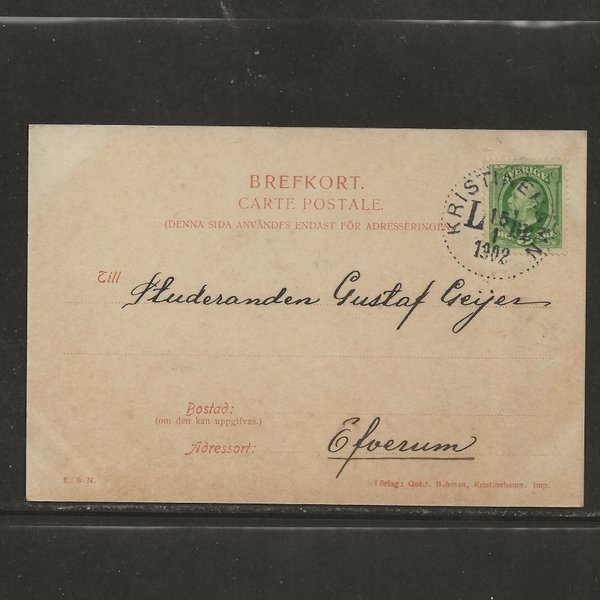 BREFKORT.
CARTE POSTALE.
(DENNA SIDA ANVÄNDES ENDAST FÖR ADRESSERINGEN
SVERIGE
KRISTINEHAMN
L
1902
Till
Studeranden Gustaf Geijer
Bostad:
(om den kan uppgifvas.)
Adressort:
Efverum
E. & N.
Förlag: Gust. Bohman, Kristinehamn. Imp.